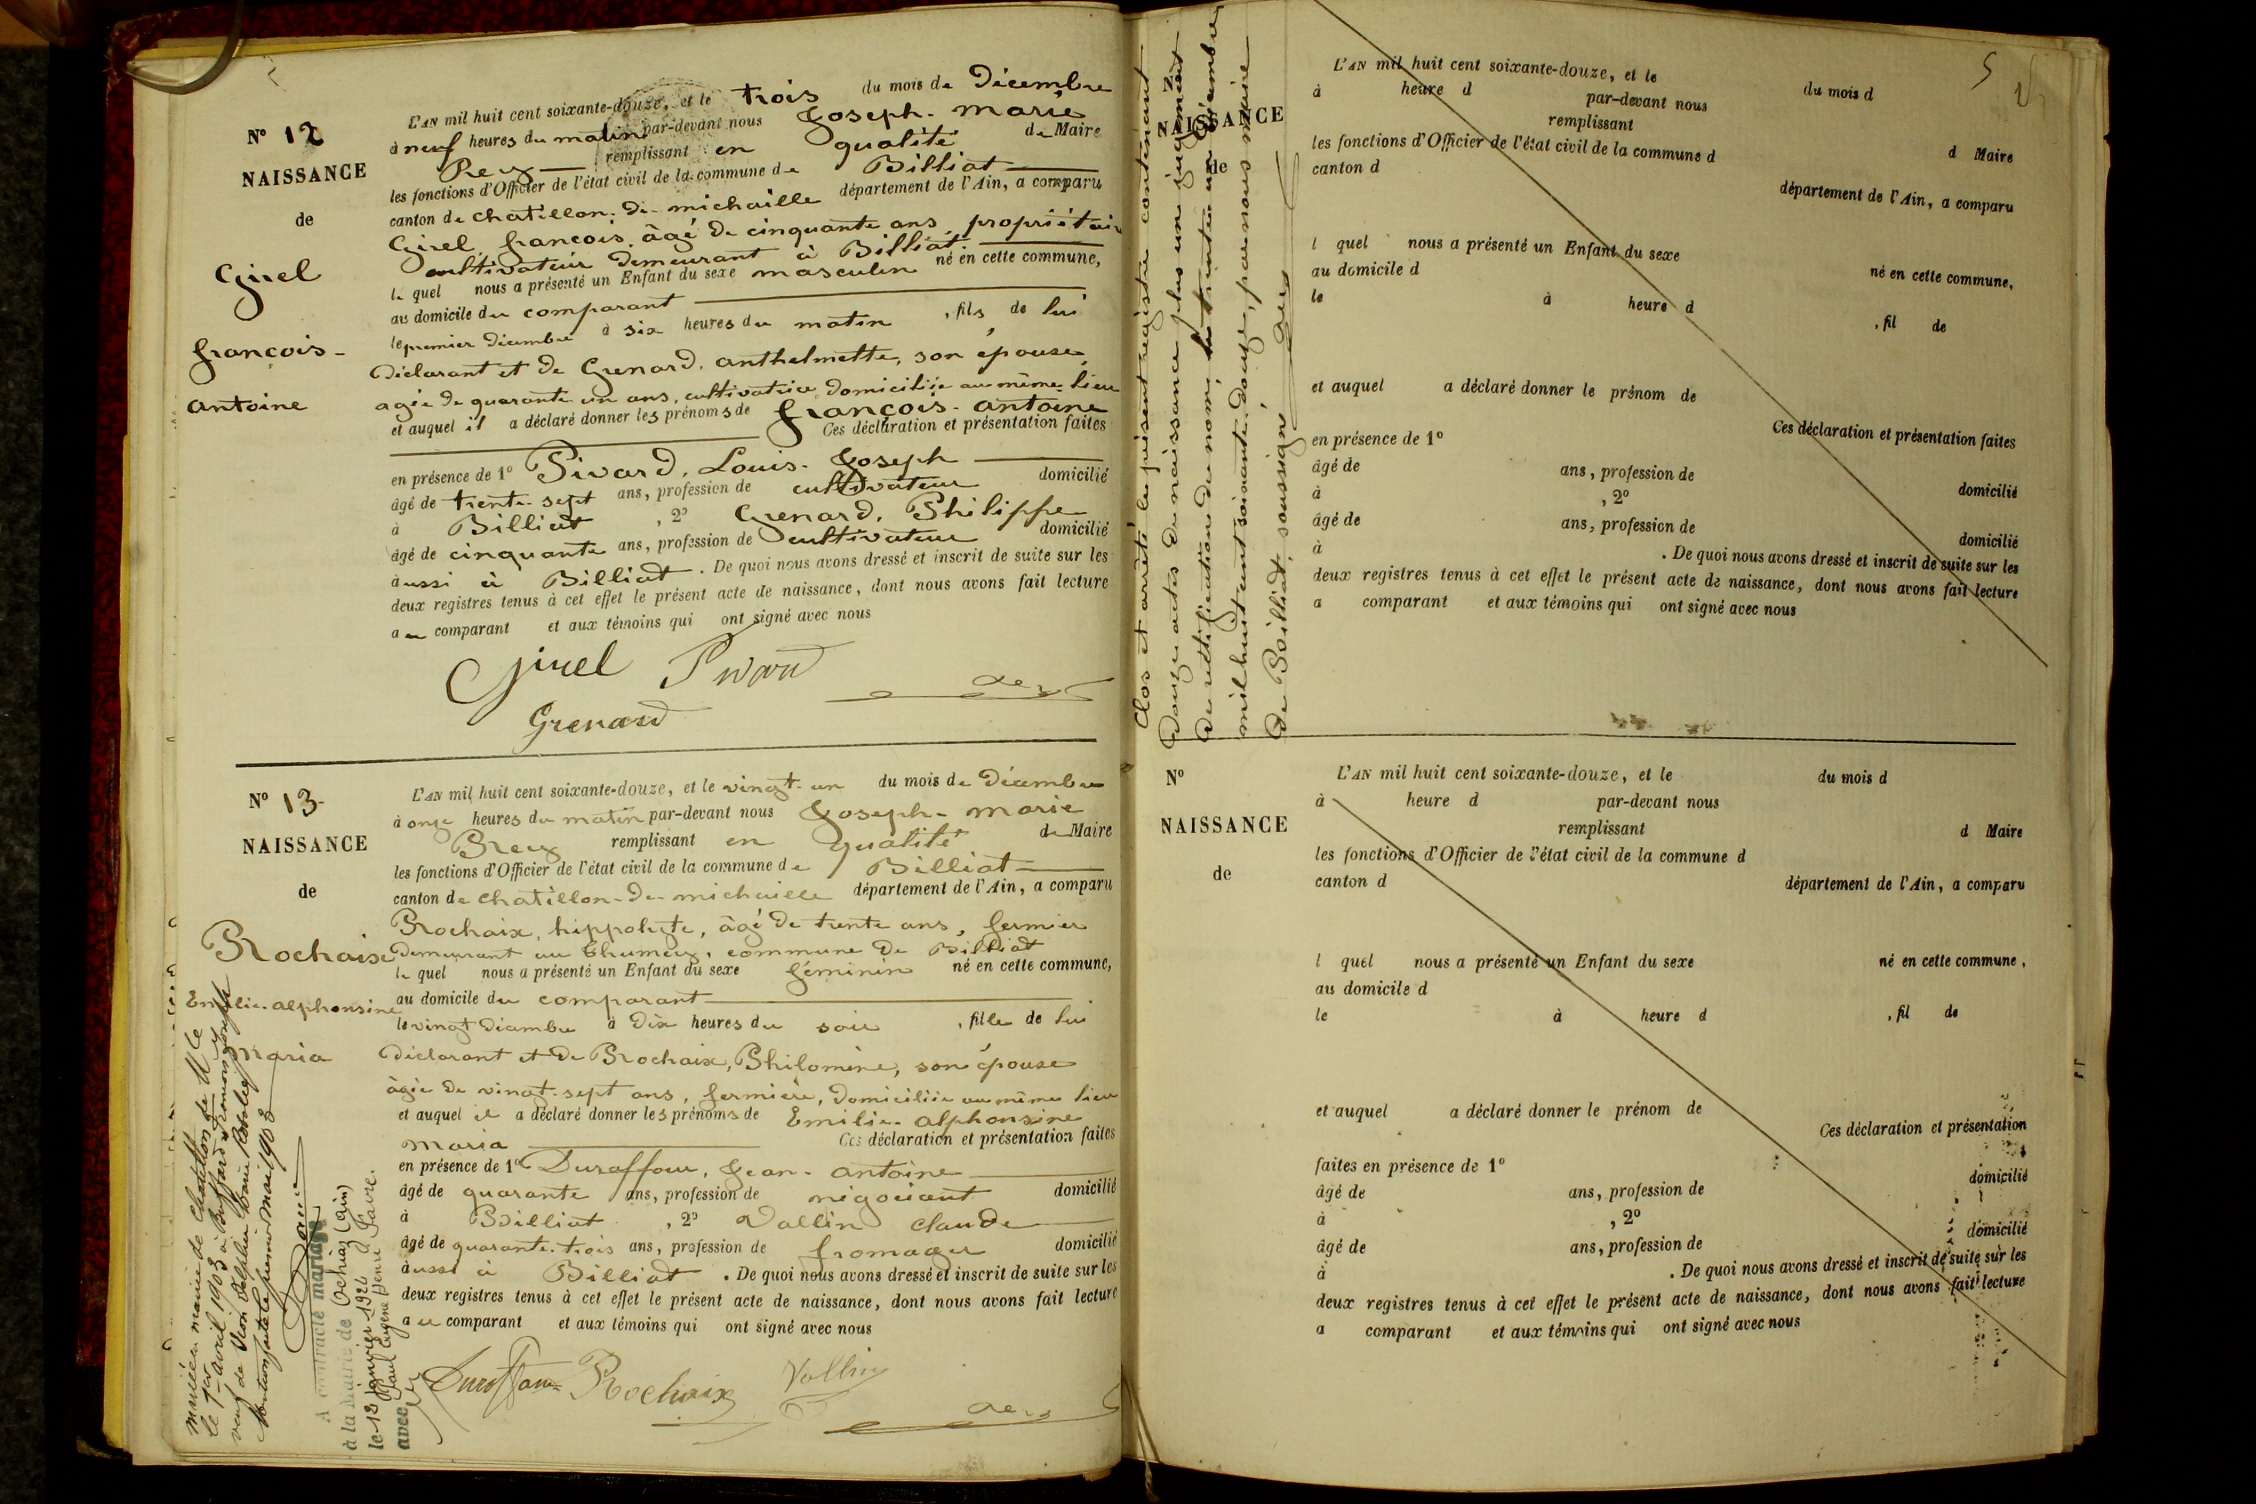 N° 12
NAISSANCE
de
Girel
françois-
antoine
L'AN mil huit cent soixante-douze, et le trois du mois de Décembre
à neuf heures du matin par-devant nous Joseph-marie
Prex remplissant en qualité de Maire
les fonctions d'Officier de l'état civil de la commune de Billiat
canton de chatillon-de-michaille département de l'Ain, a comparu
Girel françois, âgé de cinquante ans, propriétaire
cultivateur demeurant à Billiat
le quel nous a présenté un Enfant du sexe masculin né en cette commune,
au domicile du comparant
le premier Décembre à six heures du matin, fils de lui
Déclarant et de Grenard, anthelmette, son épouse
agée de quarante un ans, cultivatrice domiciliée au même lieu
et auquel il a déclaré donner les prénoms de françois-antoine
Ces déclaration et présentation faites
en présence de 1° Pivard, Louis-Joseph
âgé de trente-sept ans, profession de cultivateur domicilié
à Billiat, 2° Grenard, Philippe
âgé de cinquante ans, profession de cultivateur domicilié
aussi à Billiat. De quoi nous avons dressé et inscrit de suite sur les
deux registres tenus à cet effet le présent acte de naissance, dont nous avons fait lecture
au comparant et aux témoins qui ont signé avec nous
Girel Pivard
Grenard
N° 13-
NAISSANCE
de
Rochaix
Emilie-alphonsine
maria
L'AN mil huit cent soixante-douze, et le vingt-un du mois de Décembre
à onze heures du matin par-devant nous Joseph-marie
Prex remplissant en qualité de Maire
les fonctions d'Officier de l'état civil de la commune de Billiat
canton de chatillon-de-michaille département de l'Ain, a comparu
Rochaix, hippolyte, âgé de trente ans, fermier
demeurant au commune de Billiat
le quel nous a présenté un Enfant du sexe féminin né en cette commune,
au domicile du comparant
le vingt Décembre à dix heures du soir, fille de lui
déclarant et de Rochaix, Philomène, son épouse
âgée de vingt-sept ans, fermière, domiciliée au même lieu
et auquel il a déclaré donner les prénoms de Emilie-alphonsine
maria Ces déclaration et présentation faites
en présence de 1° Duraffour, Jean-antoine
âgé de quarante ans, profession de négociant domicilié
à Billiat, 2° Vallin claude
âgé de quarante-trois ans, profession de fromager domicilié
aussi à Billiat. De quoi nous avons dressé et inscrit de suite sur les
deux registres tenus à cet effet le présent acte de naissance, dont nous avons fait lecture
au comparant et aux témoins qui ont signé avec nous
Duraffour Rochaix Vallin
mariée en mairie de Chatillon de Mlle
le 1er avril 1903 à Buffard françois Joseph
veuf de Delphine Marie
mention faite le premier mai 1903
A contracté mariage
à la Mairie de Ochiaz (Ain)
le 13 janvier 1926
avec Paul Eugène Henri Favre.
Clos et arrêté le présent registre contenant
Douze actes de naissance plus un jugement
De rectification de nom, le trente un Décembre
mil huit cent soixante-douze, par nous maire
De Billiat, soussigné
5
NAISSANCE
de
L'AN mil huit cent soixante-douze, et le du mois d
à heure d par-devant nous
remplissant d Maire
les fonctions d'Officier de l'état civil de la commune d
canton d département de l'Ain, a comparu
l quel nous a présenté un Enfant du sexe né en cette commune,
au domicile d
le à heure d, fil de
et auquel a déclaré donner le prénom de
Ces déclaration et présentation faites
en présence de 1°
âgé de ans, profession de domicilié
à, 2°
âgé de ans, profession de domicilié
à. De quoi nous avons dressé et inscrit de suite sur les
deux registres tenus à cet effet le présent acte de naissance, dont nous avons fait lecture
a comparant et aux témoins qui ont signé avec nous
N°
NAISSANCE
de
L'AN mil huit cent soixante-douze, et le du mois d
à heure d par-devant nous
remplissant d Maire
les fonctions d'Officier de l'état civil de la commune d
canton d département de l'Ain, a comparu
l quel nous a présenté un Enfant du sexe né en cette commune,
au domicile d
le à heure d, fil de
et auquel a déclaré donner le prénom de
Ces déclaration et présentation
faites en présence de 1°
âgé de ans, profession de domicilié
à, 2°
âgé de ans, profession de domicilié
à. De quoi nous avons dressé et inscrit de suite sur les
deux registres tenus à cet effet le présent acte de naissance, dont nous avons fait lecture
a comparant et aux témoins qui ont signé avec nous